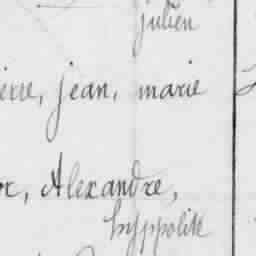 julien
jean, marie
Alexandre,
hyppolite